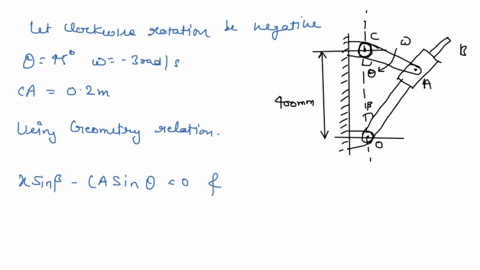 Let clockwise rotation be negative
θ = 45° ω = -3rad/s
CA = 0.2m
Using Geometry relation.
xSinβ - CASinθ <0 &
C
ω
B
θ
A
400mm
β
O